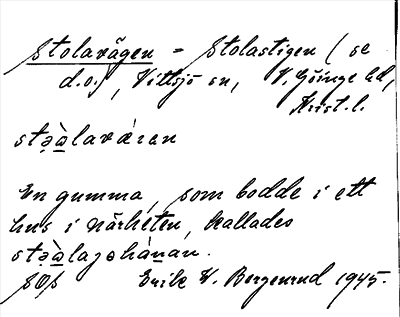 Stolavägen = Stolastigen (se
d.o.), Vittsjö sn, V. Göinge hd,
Krist. l.
stə̀alavǽran
En gumma, som bodde i ett
hus i närheten, kallades
Erik W. Bergenrud 1945.